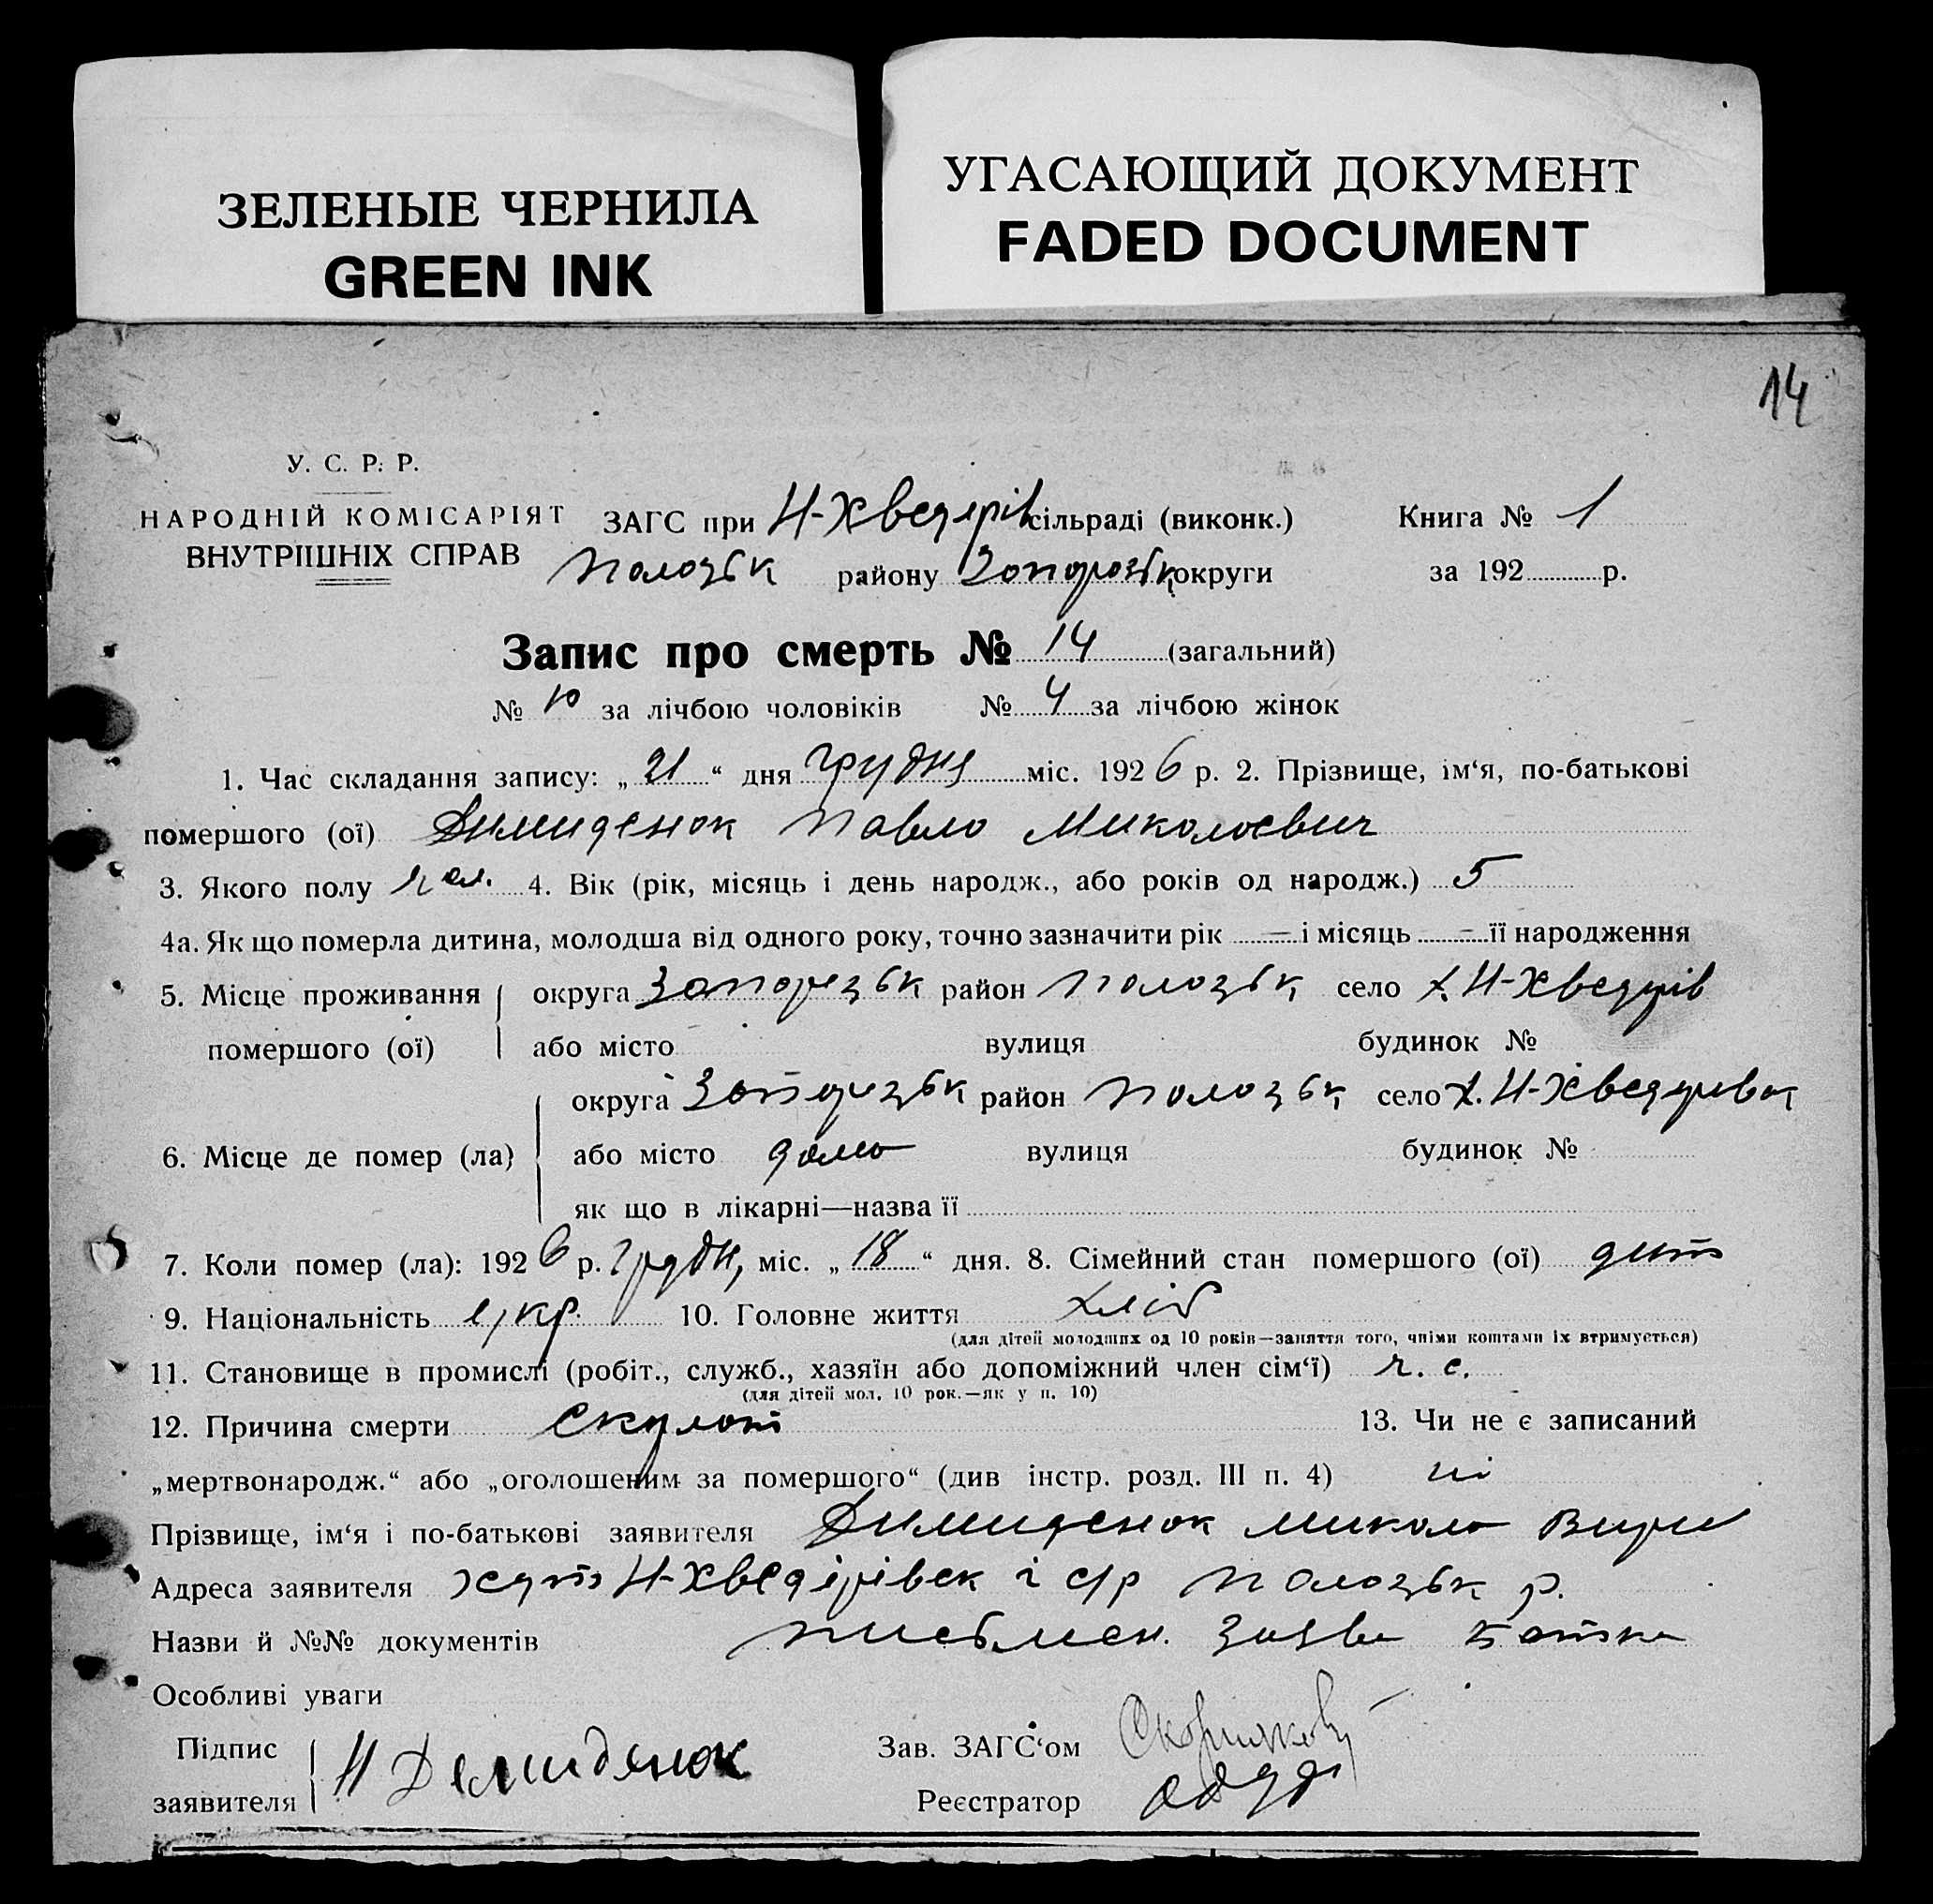 ЗЕЛЕНЫЕ ЧЕРНИЛА
GREEN INK
УГАСАЮЩИЙ ДОКУМЕНТ
FADED DOCUMENT
14
У. С. Р. Р.
НАРОДНІЙ КОМІСАРІЯТ
ВНУТРІШНІХ СПРАВ
ЗАГС при Н-Хведерів сільраді (виконк.) Книга № 1
Пологзьк району Запорозьк округи за 192 р.
Запис про смерть № 14 (загальний)
№ 10 за лічбою чоловіків № 4 за лічбою жінок
1. Час складання запису: „ 21 “ дня грудня міс. 1926 р. 2. Прізвище, ім‘я, по-батькові
помершого (ої) Димиденок Павло Миколоевич
3. Якого полу чол. 4. Вік (рік, місяць і день народж., або років од народж.) 5
4а. Як що померла дитина, молодша від одного року, точно зазначити рік — і місяць - її народження
5. Місце проживання помершого (ої) округа Запорізьк район Пологзьк село х. Н-Хведерів
або місто вулиця будинок №
6. Місце де помер (ла) округа Запорізьк район Пологзьк село х. Н-Хведерівка
або місто дома вулиця будинок №
як що в лікарні—назва її
7. Коли помер (ла): 1926 р. грудн, міс. „ 18 “ дня. 8. Сімейний стан помершого (ої) дит
9. Національність укр. 10. Головне життя хліб
(для дітей молодших од 10 років—заняття того, чиїми коштами їх втримується)
11. Становище в промислі (робіт., служб., хазяїн або допоміжний член сім‘ї) ч. с.
(для дітей мол. 10 рок.—як у п. 10)
12. Причина смерти 13. Чи не є записаний
„мертвонародж.“ або „оголошеним за помершого“ (див інстр. розд. III п. 4) ні
Прізвище, ім‘я і по-батькові заявителя Димиденок Микола
Адреса заявителя хут Н-Хведірівск с/р Пологзьк р.
Назви й №№ документів письмен. заява батька
Особливі уваги
Підпис заявителя Н Демиденок
Зав. ЗАГС‘ом
Реєстратор